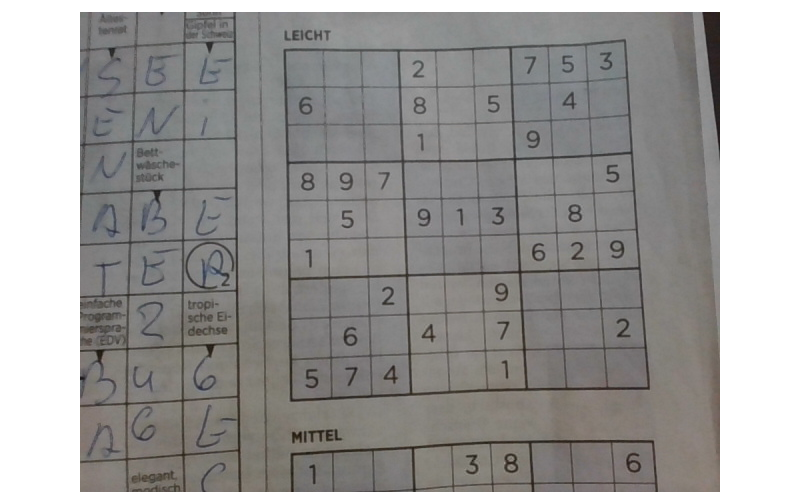 Gipfel in
der Schweiz
S E E
E N i
N
Bett-
wäsche-
stück
A B E
T E R
2
einfache
Program-
miersprache (EDV)
Z
tropi-
sche Ei-
dechse
B U G
A G E
elegant,
modisch
LEICHT
2 7 5 3
6 8 5 4
1 9
8 9 7 5
5 9 1 3 8
1 6 2 9
2 9
6 4 7 2
5 7 4 1
MITTEL
1 3 8 6